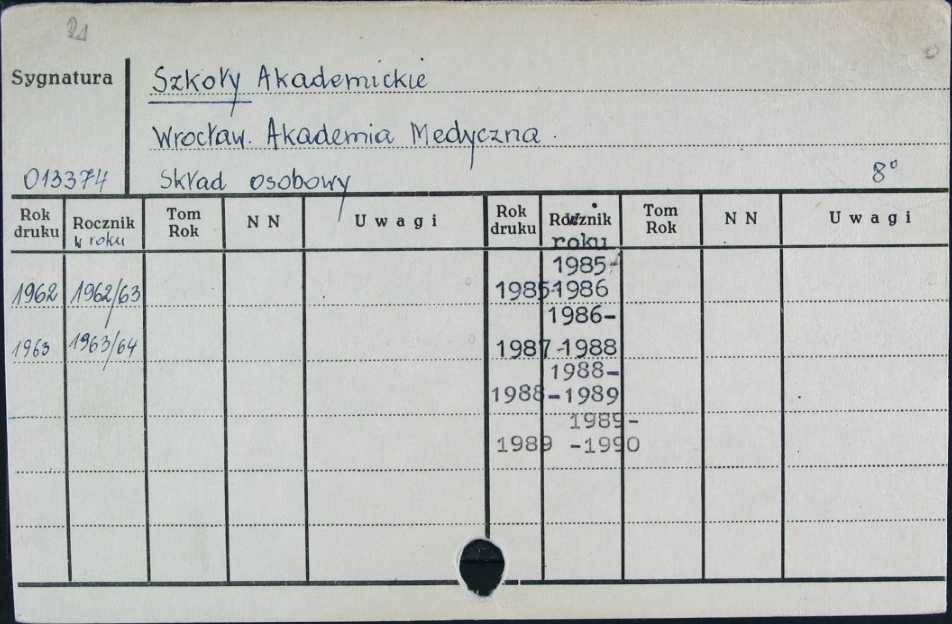 Sygnatura
Szkoły Akademickie
Wrocław. Akademia Medyczna.
013374 Skład osobowy 8°
Rok druku Rocznik w roku Tom Rok N N Uwagi Rok druku Rocznik w roku Tom Rok N N Uwagi
1962 1962/63
1963 1963/64
1985-
1985 -1986
1986-
1987 -1988
1988-
1988 -1989
1989-
1989 -1990